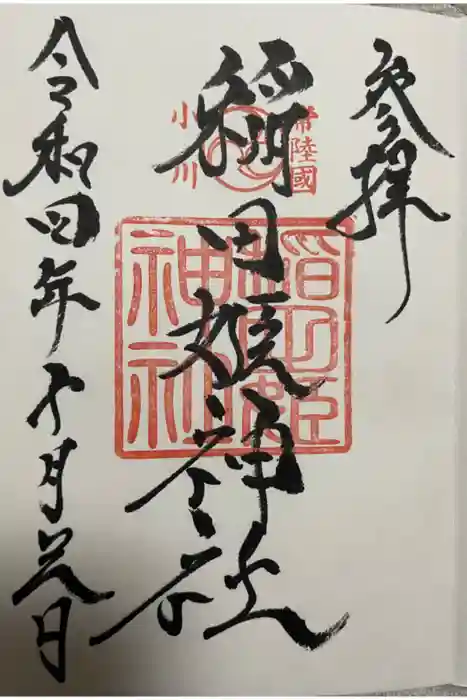 参拝
常陸國
小川
稲田姫神社
稲田姫
神社
令和四年十月 日